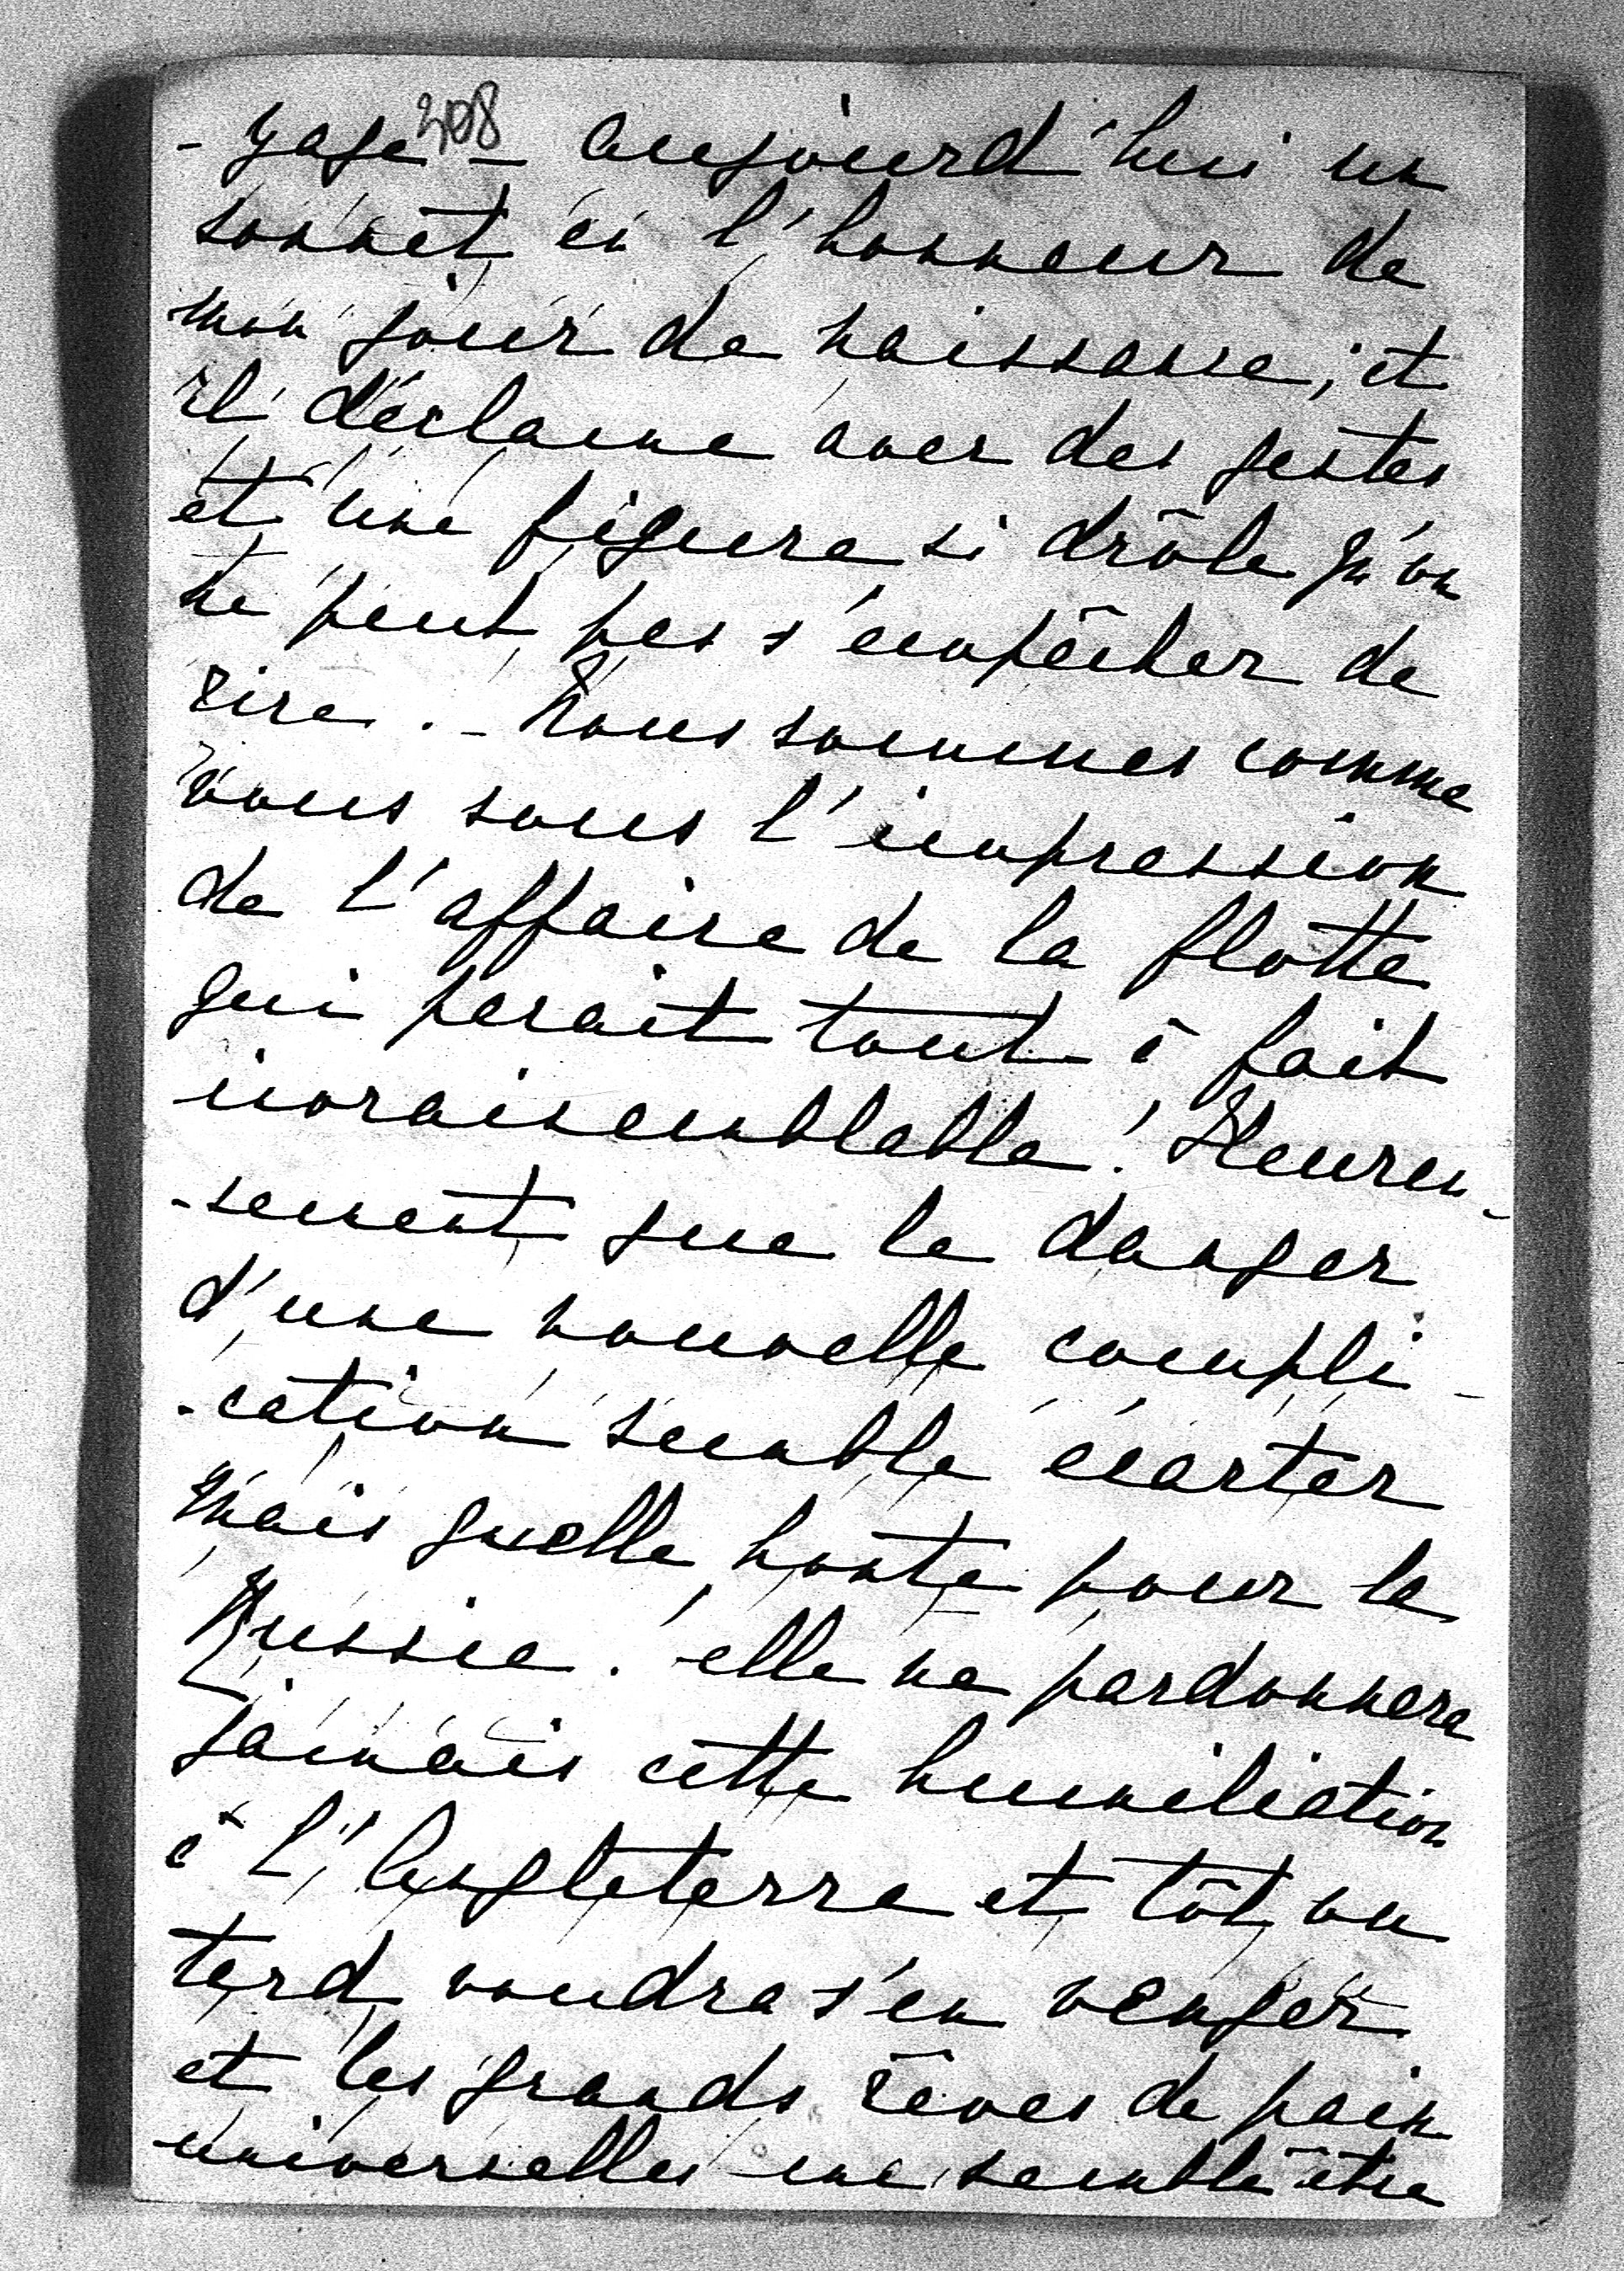 308
-yage - aujourd'hui un
sonnet en l'honneur de
mon jour de naissance; et
il déclame avec des gestes
et une figure si drôle qu'on
ne peut pas s'empêcher de
rire. - Nous sommes comme
vous sous l'impression
de l'affaire de la flotte
qui parait tout à fait
invraisemblable! Heureu-
-sement que le danger
d'une nouvelle compli-
-cation semble écarter
mais quelle honte pour la
Russie! elle ne pardonnera
jamais cette humiliation
à l'Angleterre et tôt ou
tard voudra s'en venger
et les grands rêves de paix
universelles me semble être